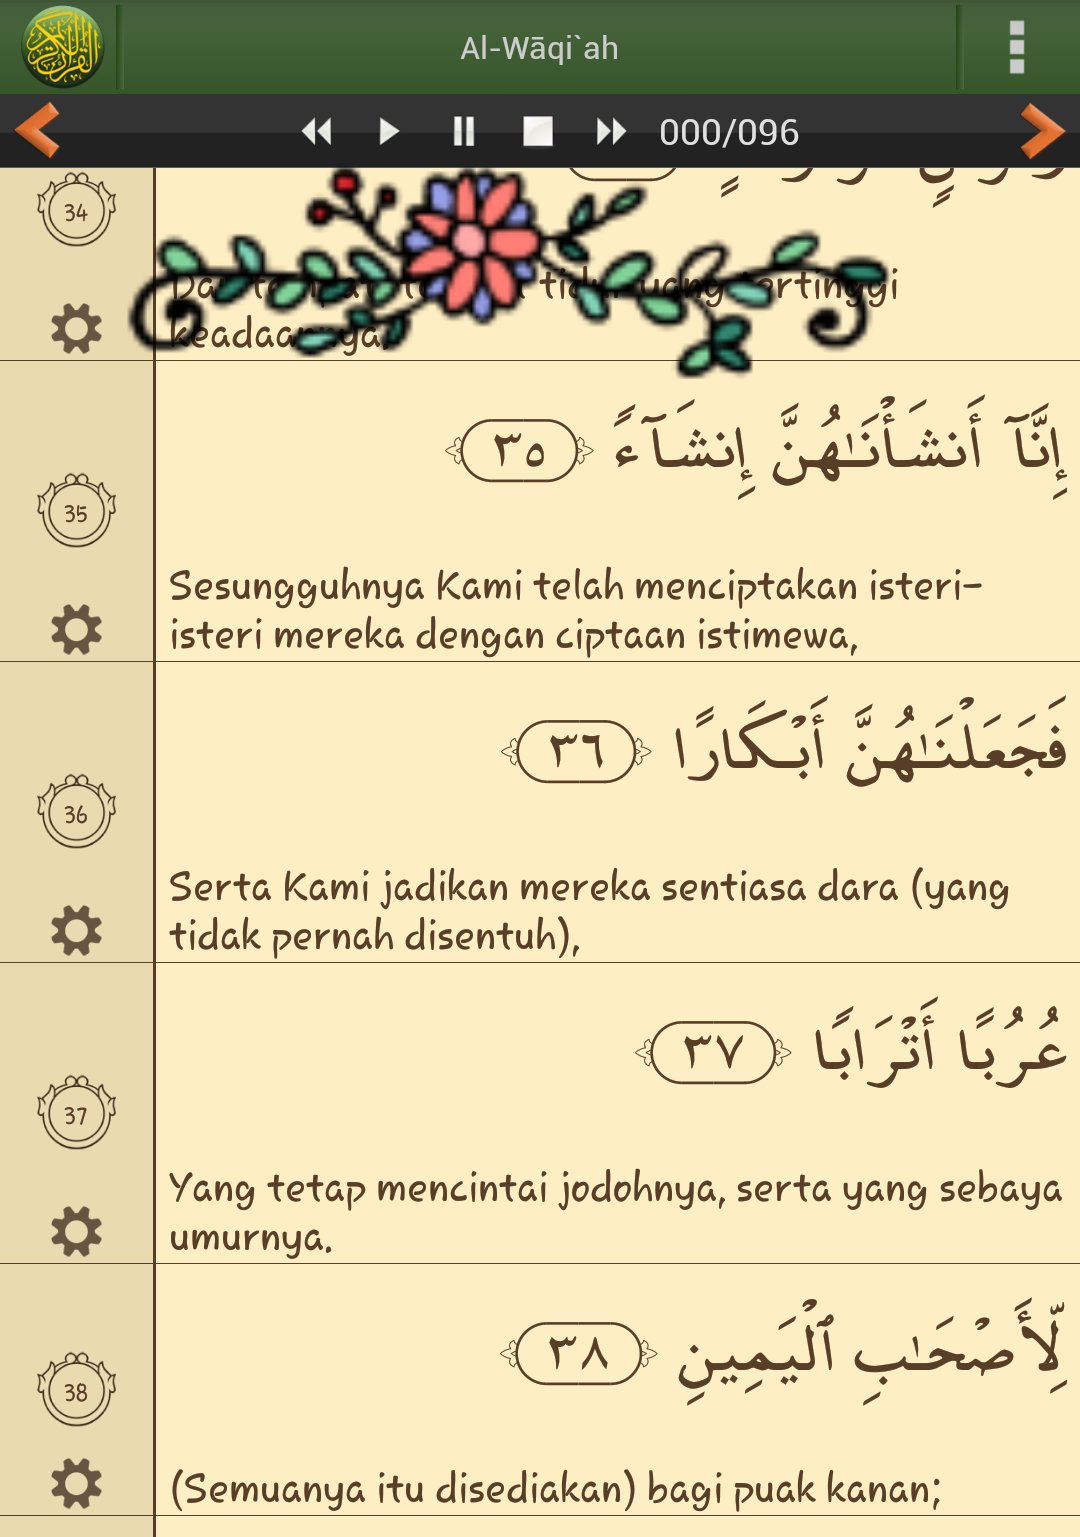 Al-Wāqi`ah
000/096
34
Dan tempat-tempat tidur yang tertinggi
keadaannya.
إِنَّآ أَنشَأْنَٰهُنَّ إِنشَآءً ٣٥
35
Sesungguhnya Kami telah menciptakan isteri-
isteri mereka dengan ciptaan istimewa,
فَجَعَلْنَٰهُنَّ أَبْكَارًا ٣٦
36
Serta Kami jadikan mereka sentiasa dara (yang
tidak pernah disentuh),
عُرُبًا أَتْرَابًا ٣٧
37
Yang tetap mencintai jodohnya, serta yang sebaya
umurnya.
لِّأَصْحَٰبِ ٱلْيَمِينِ ٣٨
38
(Semuanya itu disediakan) bagi puak kanan;